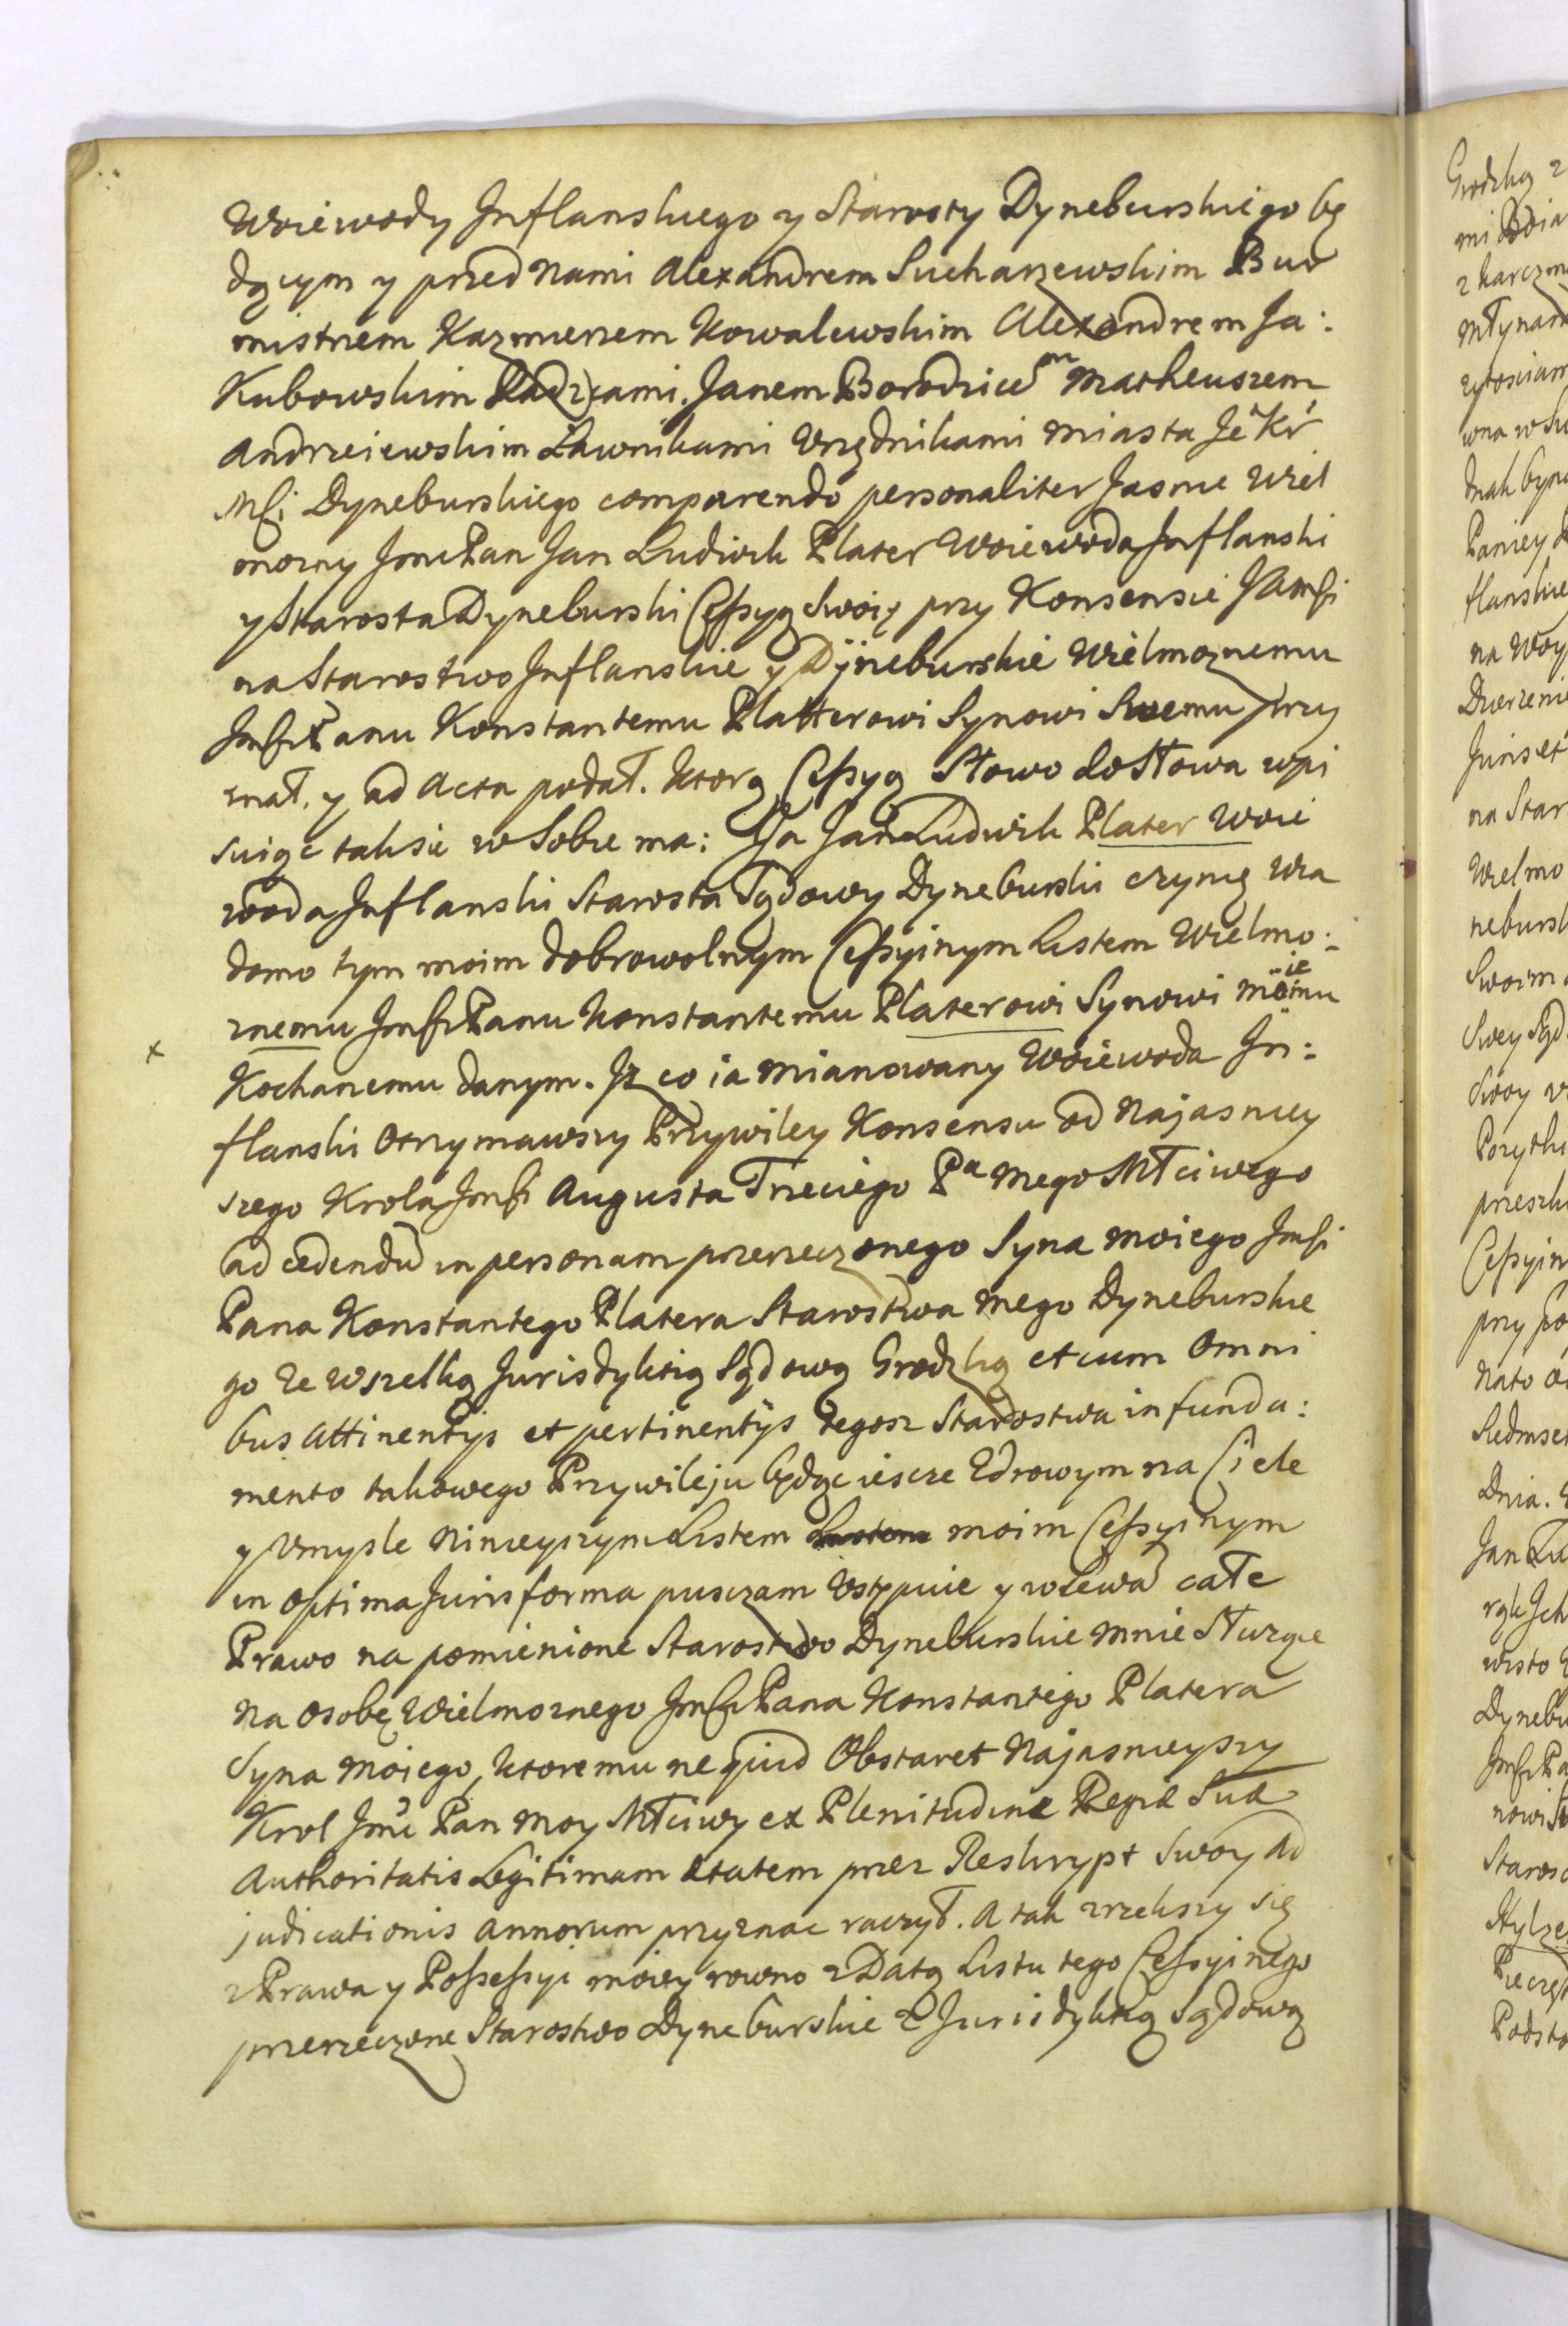 Woiewody Jnflanskiego y Starosty Dyneburskiego bę
dącym y przed nami Alexandrem Sucharzewskim Bur
mistrzem Kazmierzem Kowalewskim Alexandrem Ja:
kubowskim Radzcami. Janem Borodzicem Matheuszem
Andrzeiewskim Ławnikami Vrzędnikami Miasta Je Kr
Msci Dyneburskiego comparendo personaliter Jasnie Wiel
mozny Jmci Pan Jan Ludwik Plater Woiewoda Jnflanski
y Starosta Dyneburski Cessyą Swoię przy Konsensie
na Starostwo Jnflanskie y Dyneburskie Wielmoznemu
Jmsci Panu Konstantemu Platterowi Synowi Swemu przy
znał. y ad Acta podał. Ktorą Cessyą Słowo do Słowa wpi
suiąc tak sie w Sobie ma: Ja Jan Ludwik Plater Woie
woda Jnflanski Starosta Sądowy Dyneburski czynię Wia
domo tym moim dobrowolnym Cessyinym Listem Wielmo:
znemu Jmsci Panu Konstantemu Platerowi Synowi Moiemu
Kochanemu danym. Jz co ia mianowany Woiewoda Jn:
flanski Otrzymawszy Przywiley Konsensu od Najasniey
szego Krola Jmsci Augusta Trzeciego Pa mego Młciwego
ad cedendū in personam przerzeczonego Syna moiego Jmsci
Pana Konstantego Platera Starostwa mego Dyneburskie
go ze wszelką Jurisdyktią Sądową Grodzką et cum Omni
bus Attinentÿs et pertinentÿs tegosz Starostwa in funda:
mento takowego Przywileju będąc iescze Zdrowym na Ciele
y Vmysle Ninieyszym Listem moim Cessyinym
in optima Juris forma pusczam Vstępuie y wlewā całe
Prawo na pomienione Starostwo Dyneburskie mnie Słuzące
Na Osobę Wielmoznego Jmsci Pana Konstantego Platera
Syna Moiego, ktoremu ne quid Obstaret Najasnieyszy
Krol Jmć Pan Moy Młciwy ex Plenitudine Regiæ Suæ
Authoritatis Legitimam ætatem przez Reskrypt Swoy Ad
judicationis Annorum przyznac raczył. A tak zrzekszy się
z Prawa y Possessyi moiey rowno z Datą Listu tego Cessyinego
przerzeczone Starostwo Dyneburskie z Jurisdyktią Sądową